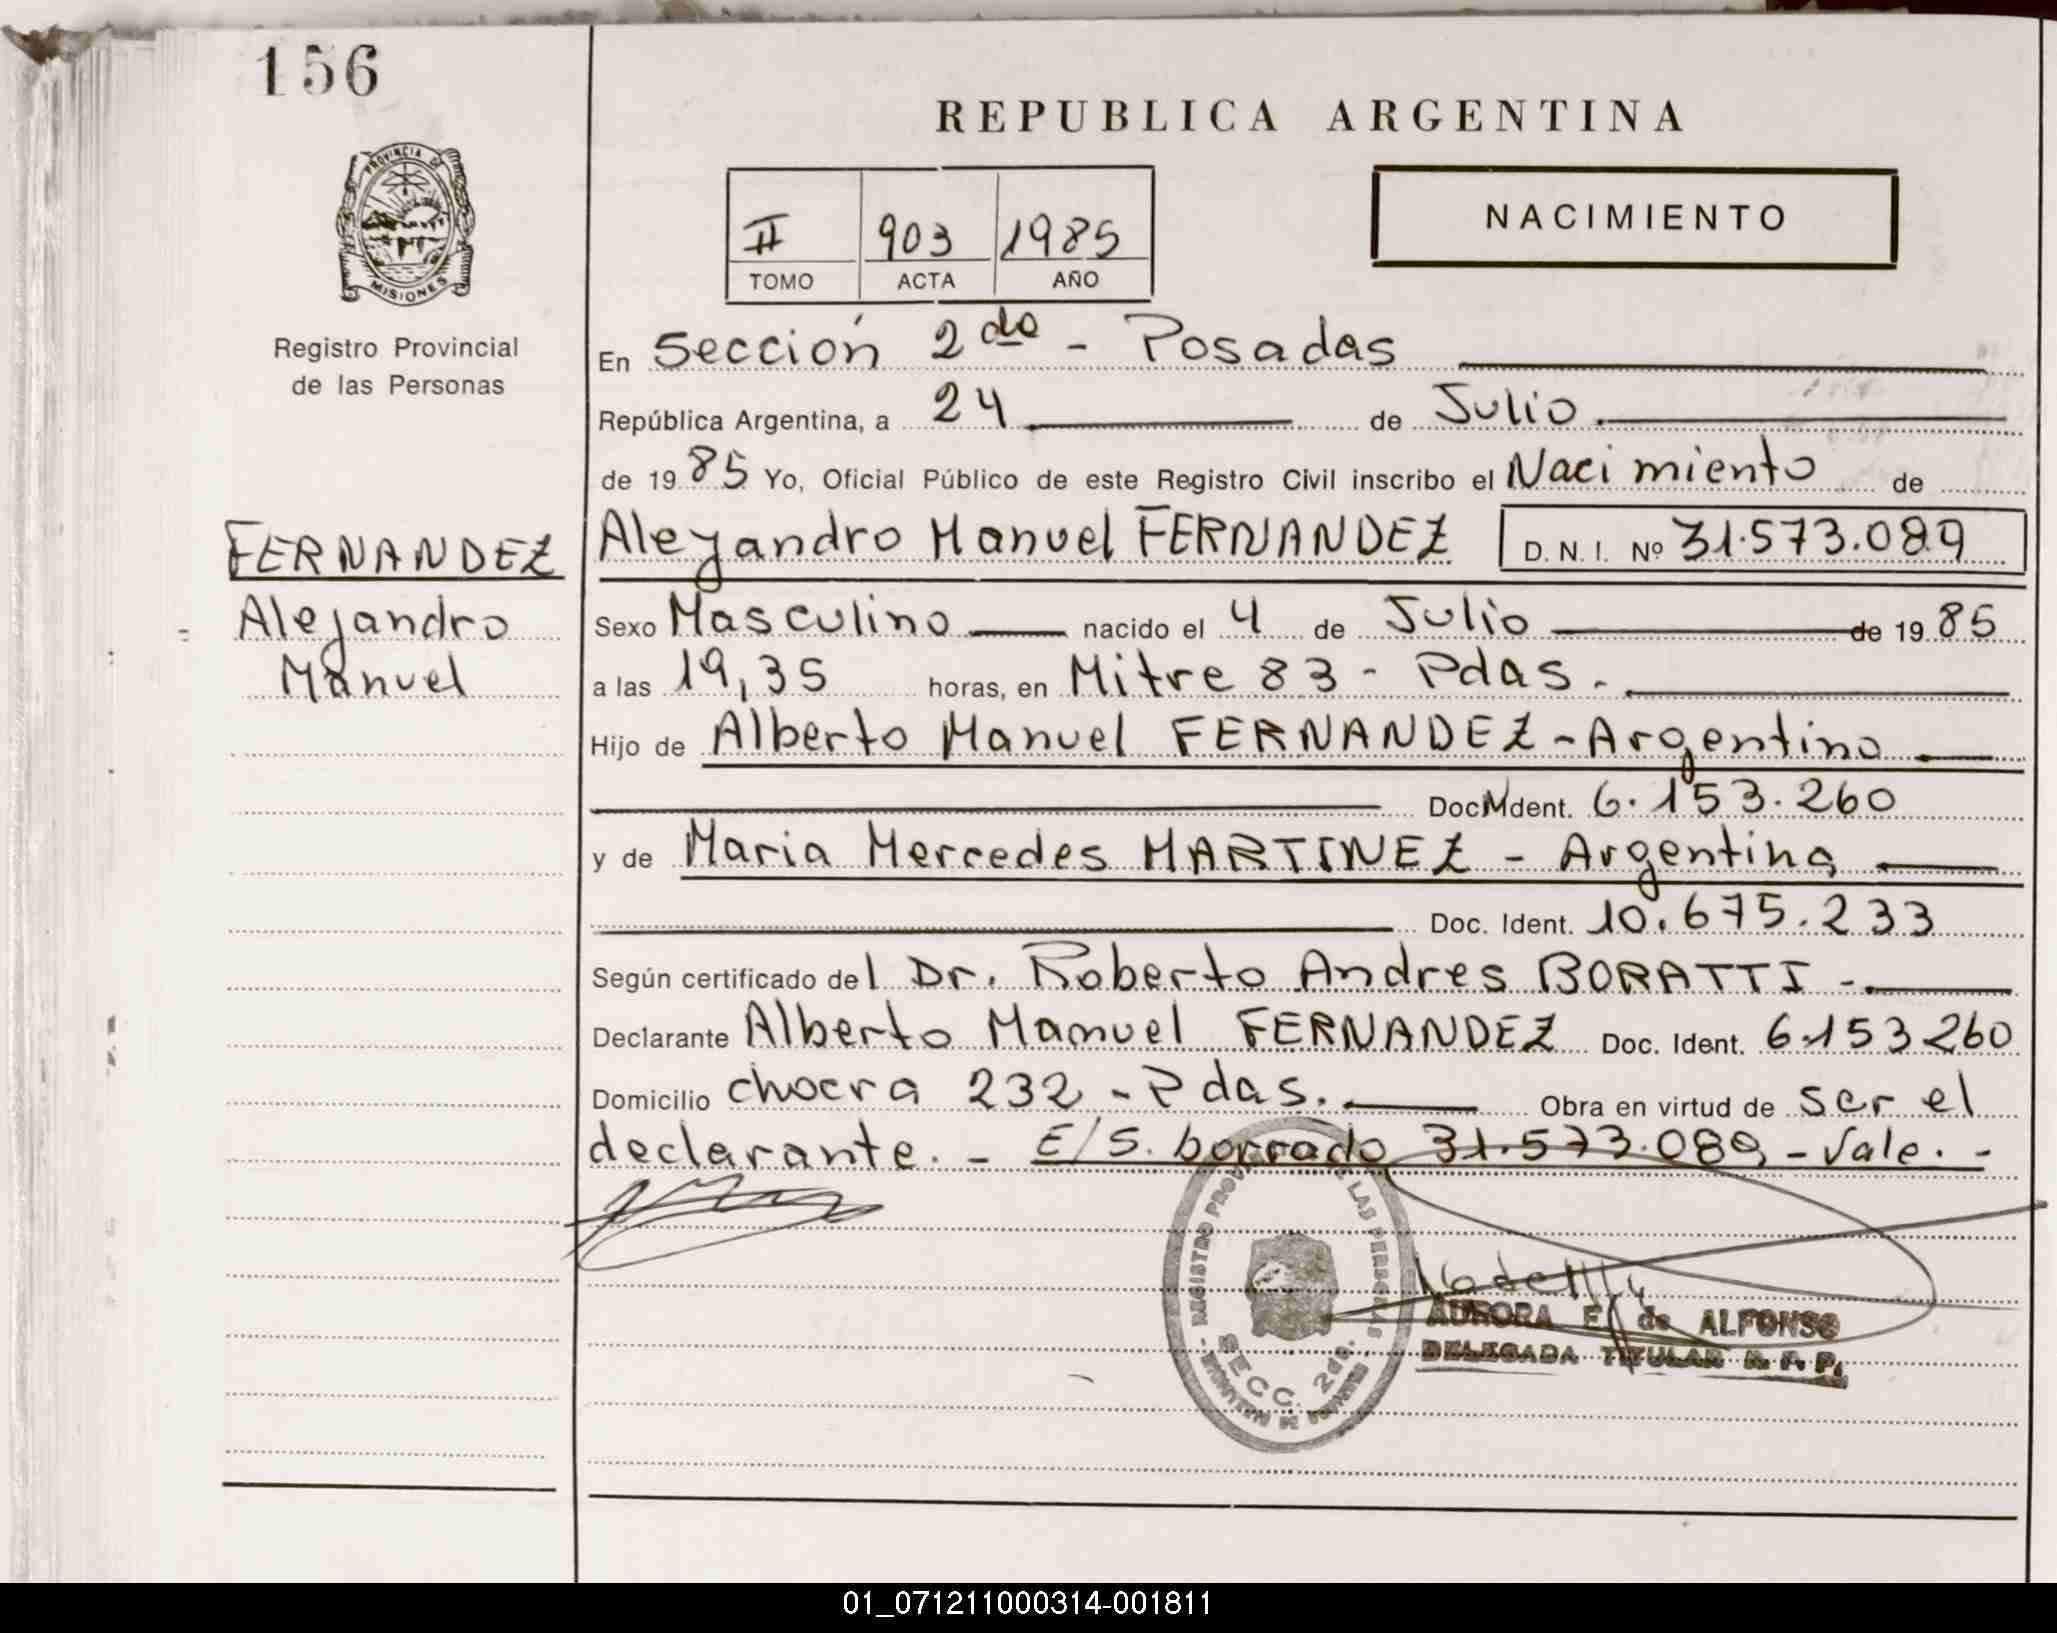 156
REPUBLICA ARGENTINA
PROVINCIA DE
MISIONES
NACIMIENTO
II 903 1985
TOMO ACTA AÑO
Registro Provincial
de las Personas
En Sección 2da - Posadas
República Argentina, a 24 de Julio
de 1985 Yo, Oficial Público de este Registro Civil inscribo el Nacimiento de
FERNANDEZ
Alejandro
Manuel
Alejandro Manuel FERNANDEZ D. N. I. Nº 31.573.089
Sexo Masculino nacido el 4 de Julio de 1985
a las 19,35 horas, en Mitre 83 - Pdas.
Hijo de Alberto Manuel FERNANDEZ - Argentino
Doc. M Ident. 6.153.260
y de Maria Mercedes MARTINEZ - Argentina
Doc. Ident. 10.675.233
Según certificado del Dr. Roberto Andres BORATTI -
Declarante Alberto Manuel FERNANDEZ Doc. Ident. 6.153260
Domicilio chacra 232 - Pdas. Obra en virtud de ser el
declarante. - E/S. borrado 31.573.089 - Vale. -
REGISTRO LAS PERSONAS
SECC. 2da.
AURORA E. de ALFONSO
DELEGADA TITULAR R. P. P.
01_071211000314-001811